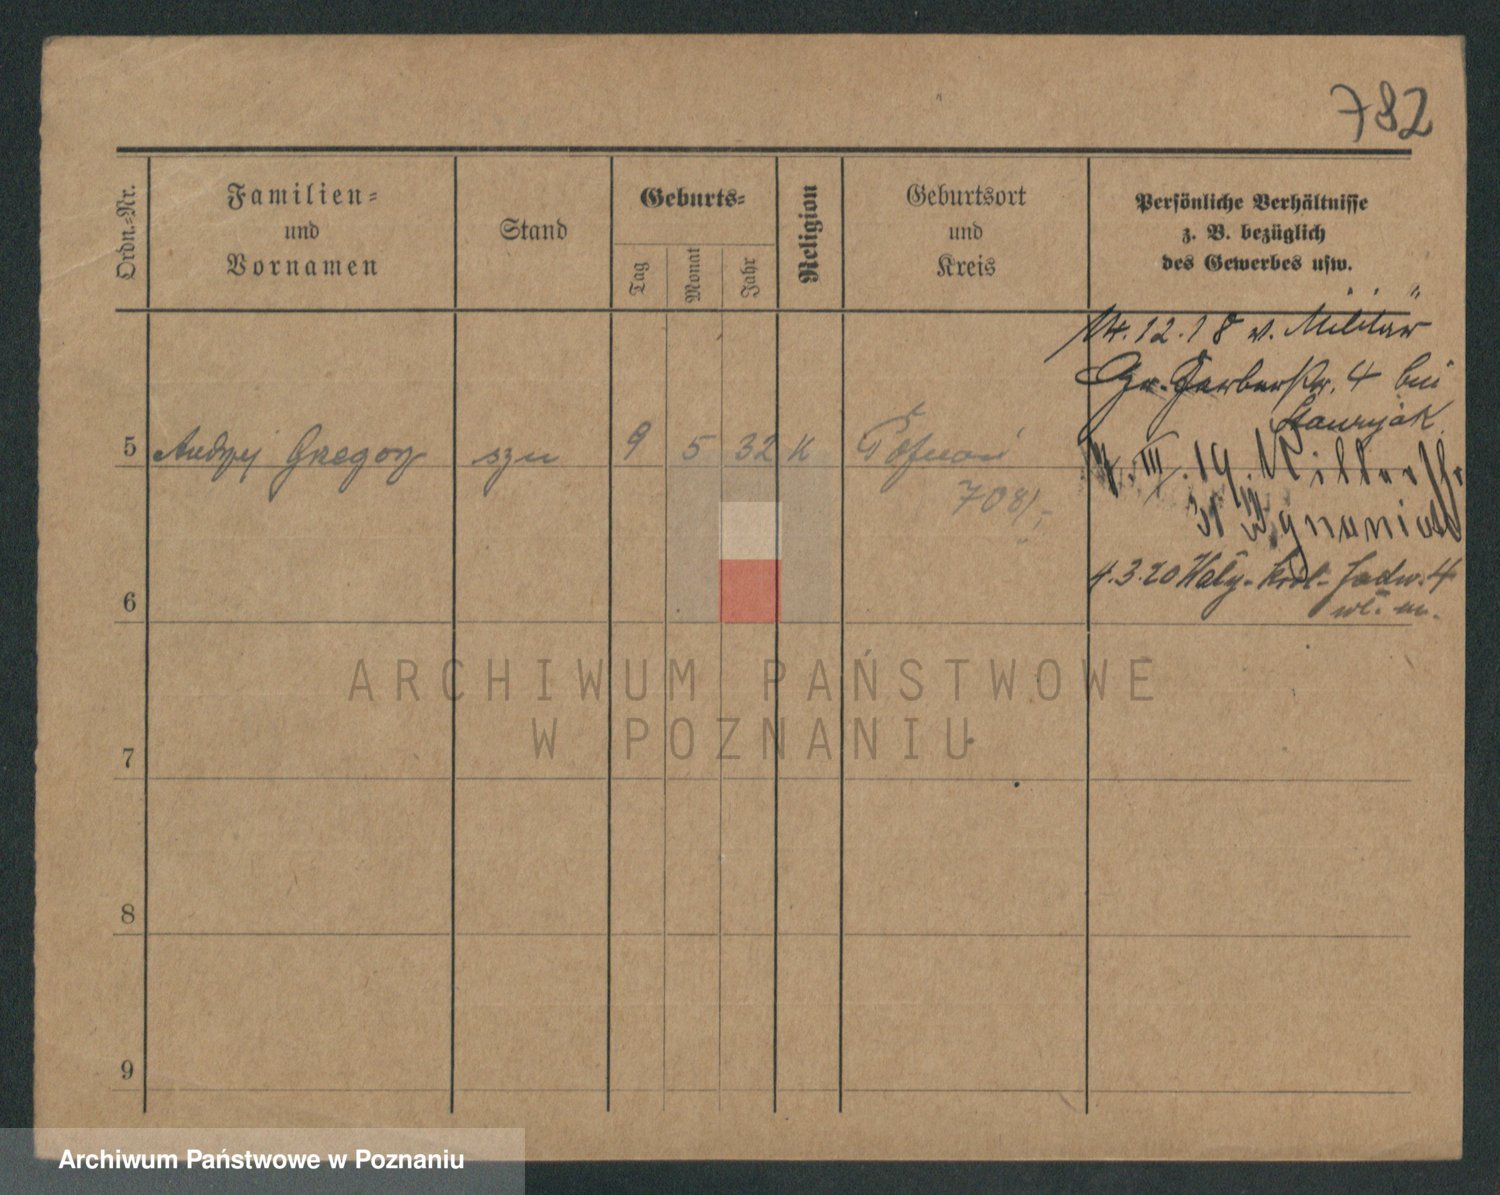 782
Ordn.-Nr.
Familien-
und
Vornamen
Stand
Geburts-
Tag
Monat
Jahr
Religion
Geburtsort
und
Kreis
Persönliche Verhältnisse
z. B. bezüglich
des Gewerbes usw.
14.12.18 v. Militär
Gr. Gerberstr. 4 bei
5 Andrzej Gregor syn 9 5 32 K Poznań
708/-
7. III. 19. Ritterstr.
4.3.20 Król. Jadw. 4
6
7
8
9
ARCHIWUM PAŃSTWOWE
W POZNANIU
Archiwum Państwowe w Poznaniu